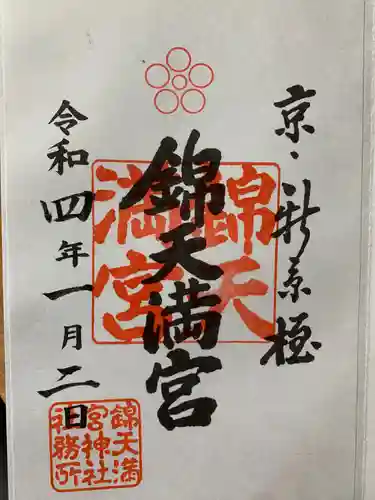 京・新京極
錦天満宮
錦天
満宮
令和四年一月二日
錦天満
宮神社
社務所